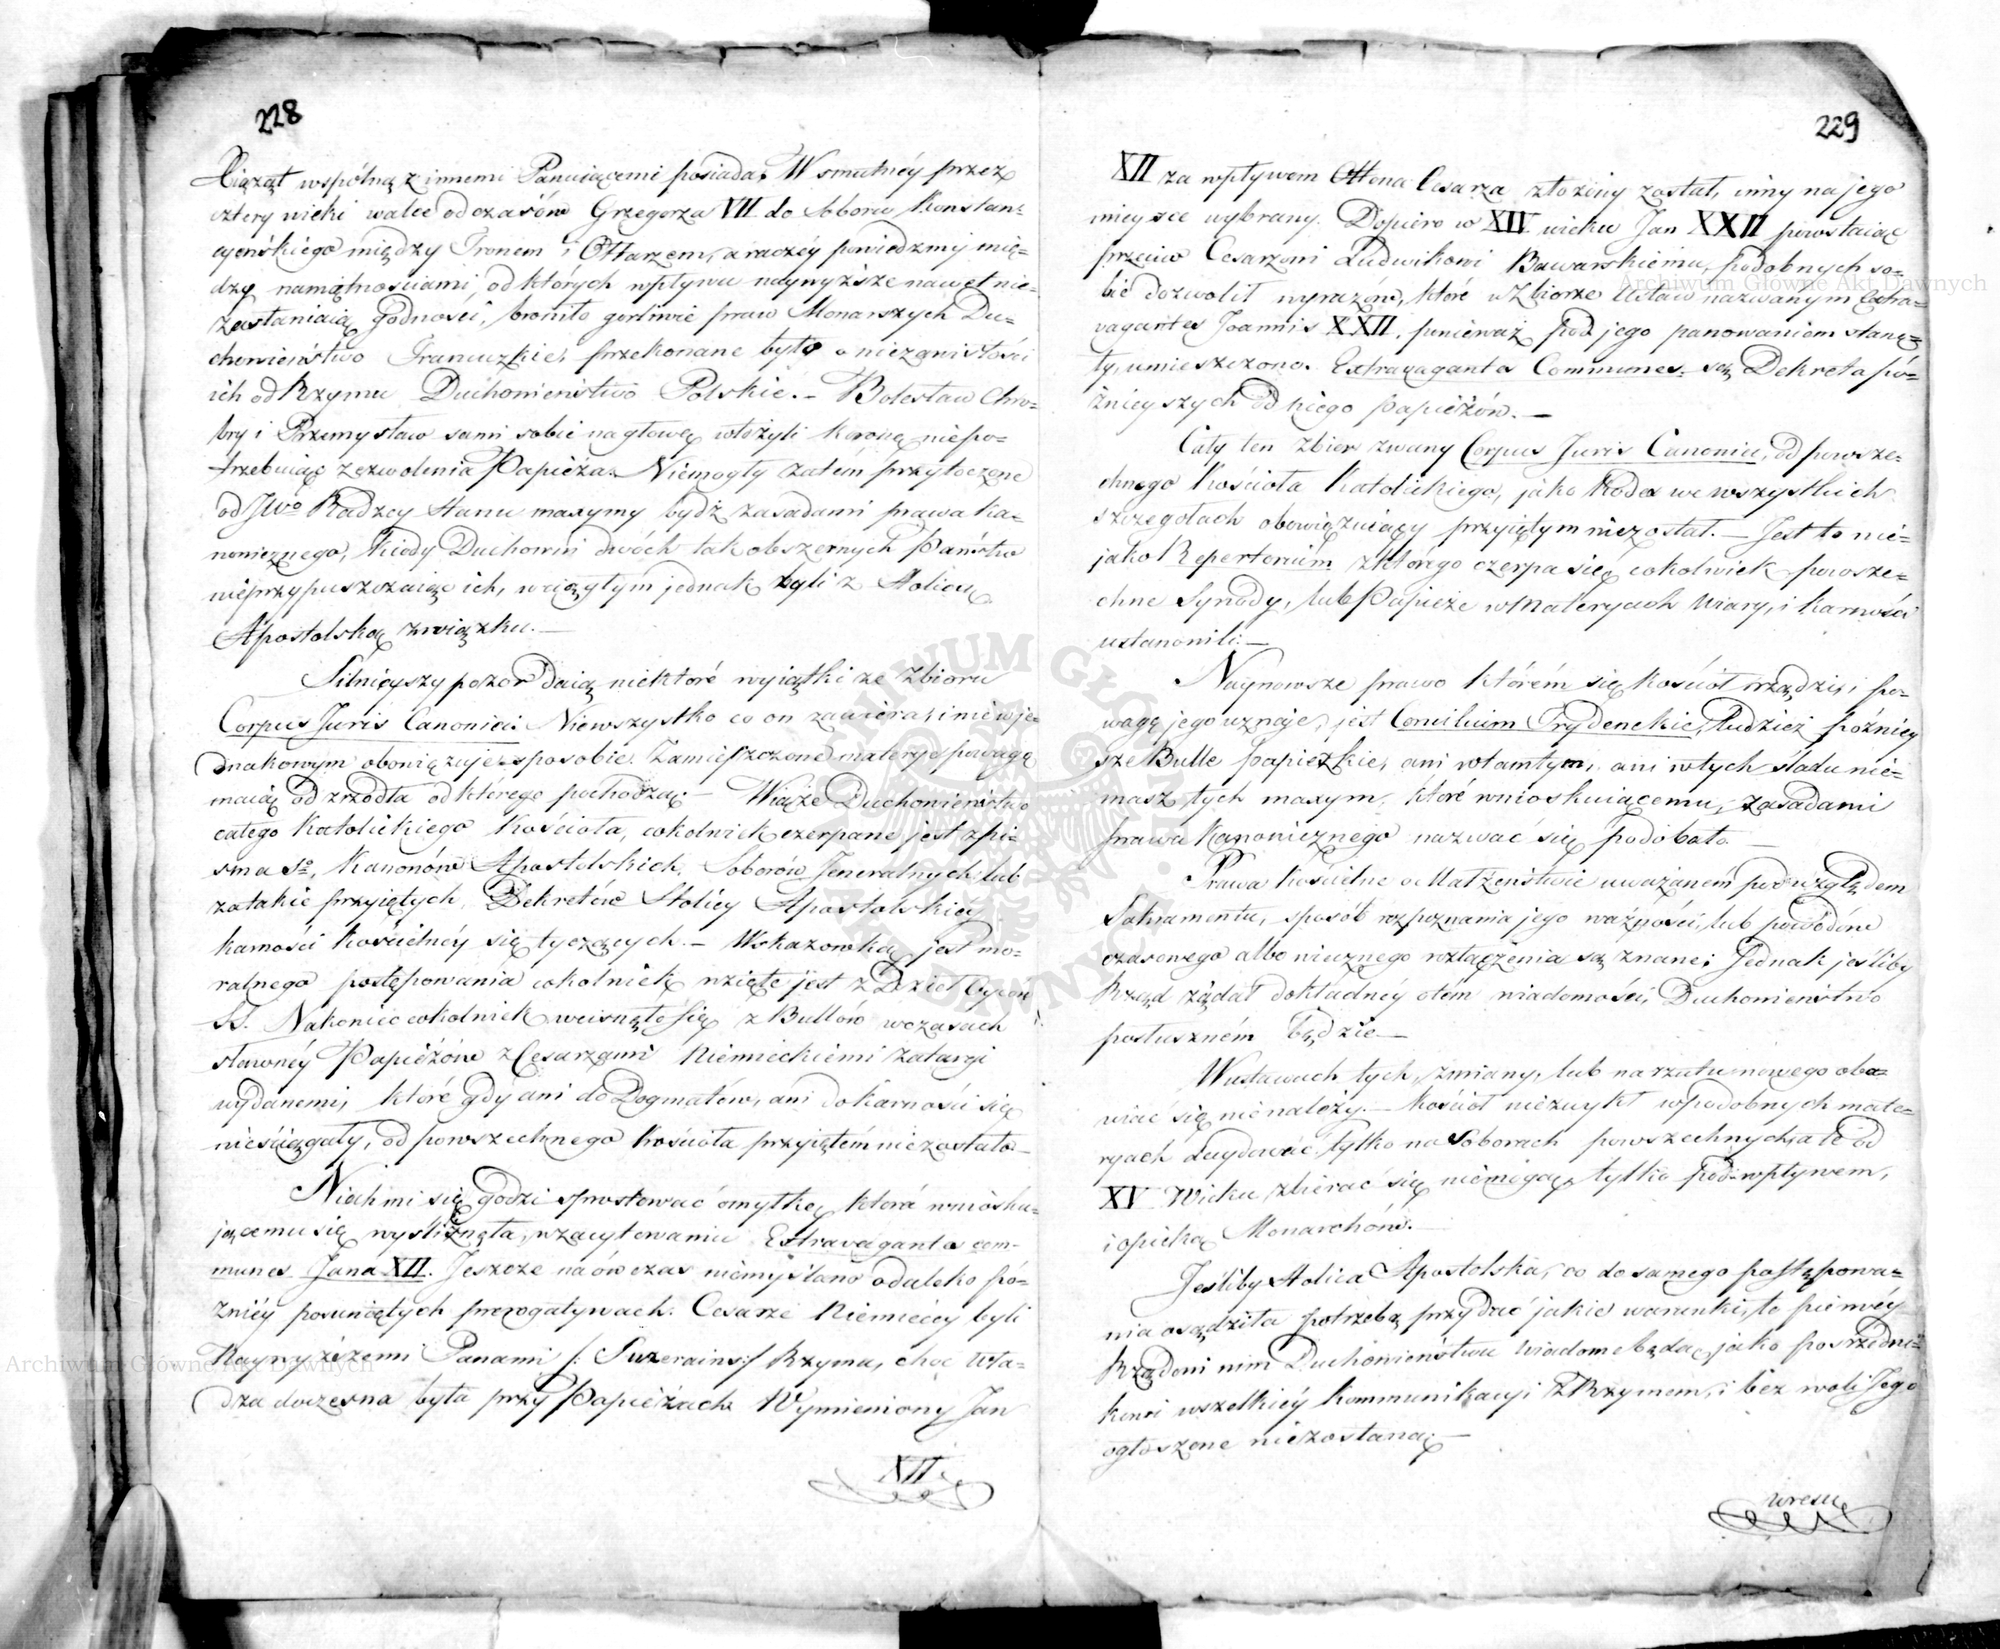 228
Xiążąt wspólną z innemi Panuiącemi posiada. W smutnéy przez
cztery wieki walce od czasów Grzegorza VII. do Soboru Konstan-
cyeńskiego między Tronem i Ołtarzem, a raczéy powiedzmy mię-
dzy namiętnościami, od których wpływu naywyższe nawet nie-
zasłaniaią godności, broniło gorliwie praw Monarszych Du-
chowieństwo Francuzkie, przekonane było o niezawisłości
ich od Rzymu Duchowieństwo Polskie. – Bolesław Chro-
bry i Przemysław sami sobie na głowę włożyli Koronę niepo-
trzebuiąc zezwolenia Papieża. Niemogły zatém przytoczone
od JWo Radzcy Stanu maxymy bydź zasadami prawa ka-
nonicznego, kiedy Duchowni dwóch tak obszernych Państw
nieprzypuszczaiąc ich, w ciągłym jednak byli z Stolicą
Apostolską związku. —
Silnieyszy pozor daią niektóre wyiątki ze Zbioru
Corpus Juris Canonici. Niewszystko co on zawiera, i nie w je-
dnakowym obowiązuje sposobie. Zamieszczone materye powagę
maią od zrzódła od którego pochodzą. — Wiąże Duchowieństwo
całego Katolickiego Kościoła, cokolwiek czerpane jest z pi-
sma So, Kanonów Apostolskich, Soborów Jeneralnych lub
za takie przyiętych, Dekretów Stolicy Apostolskiéy
karności Kościelnéy się tyczących. — Wskazowką jest mo-
ralnego postępowania cokolwiek wzięte jest z Dzieł Oyców
SS. Nakoniec cokolwiek wcisnęło się z Bullów w czasach
sławnéy Papieżów z Cesarzami Niemieckiemi zatargi
wydanemi, które gdy ani do Dogmatów, ani do karności się
nieściągały, od powszechnego Kościoła przyiętém niezostało. —
Niech mi się godzi sprostować omyłkę, która wniosku-
jącemu się wyśliznęła, w zacytowaniu Extravagantes com-
munes Jana XII. Jeszcze na ów czas niemyślano o daleko pó-
źniéy posuniętych prerogatywach. Cesarze Niemieccy byli
Naywyższemi Panami /: Suzerains :/ Rzyma, choć Wła-
dza doczesna była przy Papieżach. Wymieniony Jan
XII.
229
XII za wpływem Ottona Cesarza złożony został, inny na jego
mieysce wybrany. Dopiero w XIV. wieku Jan XXII powstaiąc
przeciw Cesarzowi Ludwikowi Bawarskiemu, podobnych so-
bie dozwolił wyrazów, które w Zbiorze Ustaw nazwanym Extra-
vagantes Joannis XXII. ponieważ pod jego panowaniem stanę-
ły, umieszczono. Extravagantes Communes są Dekreta pó-
źnieyszych od niego Papieżów. —
Cały ten Zbior zwany Corpus Juris Canonici, od powsze-
chnego Kościoła Katolickiego, jako Kodex we wszystkich
szczegołach obowiązuiący przyiętym niezostał. — Jest to nie-
jako Repertorium z którego czerpa się cokolwiek powsze-
chne Synody, lub Papieże w Materyach Wiary, i karności
ustanowili. —
Naynowsze prawo którém się Kościoł rządzi, i po-
wagę jego uznaje, jest Concilium Trydenckie, tudzież późniey-
sze Bulle papiezkie, ani w tamtym, ani w tych śladu nie-
masz tych maxym, które wnioskuiącemu, zasadami
prawa Kanonicznego nazwać się podobało. —
Prawa Kościelne o Małżeństwie uważaném pod względem
Sakramentu, sposób rozpoznania jego ważności, lub powodów
czasowego albo wiecznego rozłączenia są znane; Jednak jeśliby
Rząd żądał dokładnéy o tém wiadomości, Duchowieństwo
posłuszném będzie —
W ustawach tych, zmiany, lub narzutu nowego oba-
wiać się nienależy. — Kościoł niezwykł w podobnych mate-
ryach decydować tylko na Soborach powszechnych, a te od
XV Wieku zbierać się niemogą, tylko pod wpływem,
i opieką Monarchów. —
Jeśliby Stolica Apostolska, co do samego postępowa-
nia osądziła potrzebą przydać jakie warunki, to pierwéy
Rządowi nim Duchowieństwu wiadome będą, jako pośrzedni-
kowi wszelkiéy kommunikacyi z Rzymem, i bez woli Jego
ogłoszone niezostaną. —
wresz
Archiwum Główne Akt Dawnych
Archiwum Główne Akt Dawnych